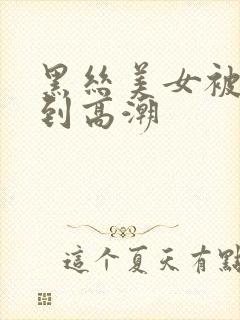 黑絲美女被
到高潮
這个夏天有點